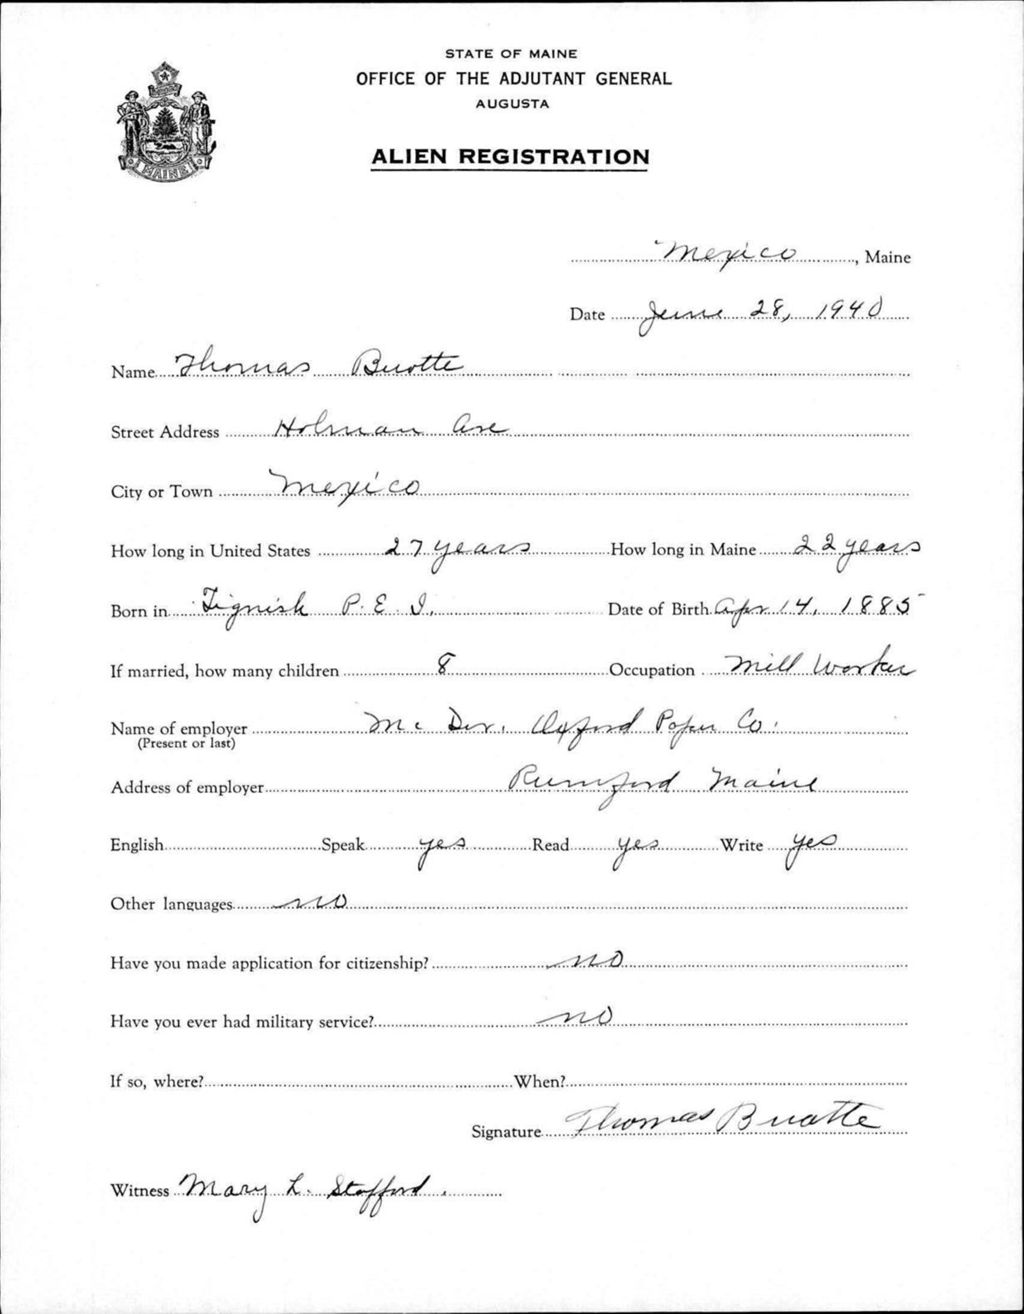 STATE OF MAINE
OFFICE OF THE ADJUTANT GENERAL
AUGUSTA
ALIEN REGISTRATION
MAINE
Mexico, Maine
Date June 28, 1940
Name Thomas Buotte
Street Address Holman Ave
City or Town Mexico
How long in United States 27 years How long in Maine 22 years
Born in Tignish P.E.I. Date of Birth Apr 14, 1885
If married, how many children 8 Occupation Mill Worker
Name of employer Me Div. Oxford Paper Co.
(Present or last)
Address of employer Rumford Maine
English Speak yes Read yes Write yes
Other languages no
Have you made application for citizenship? no
Have you ever had military service? no
If so, where? When?
Signature Thomas Buatte
Witness Mary L. Stafford.